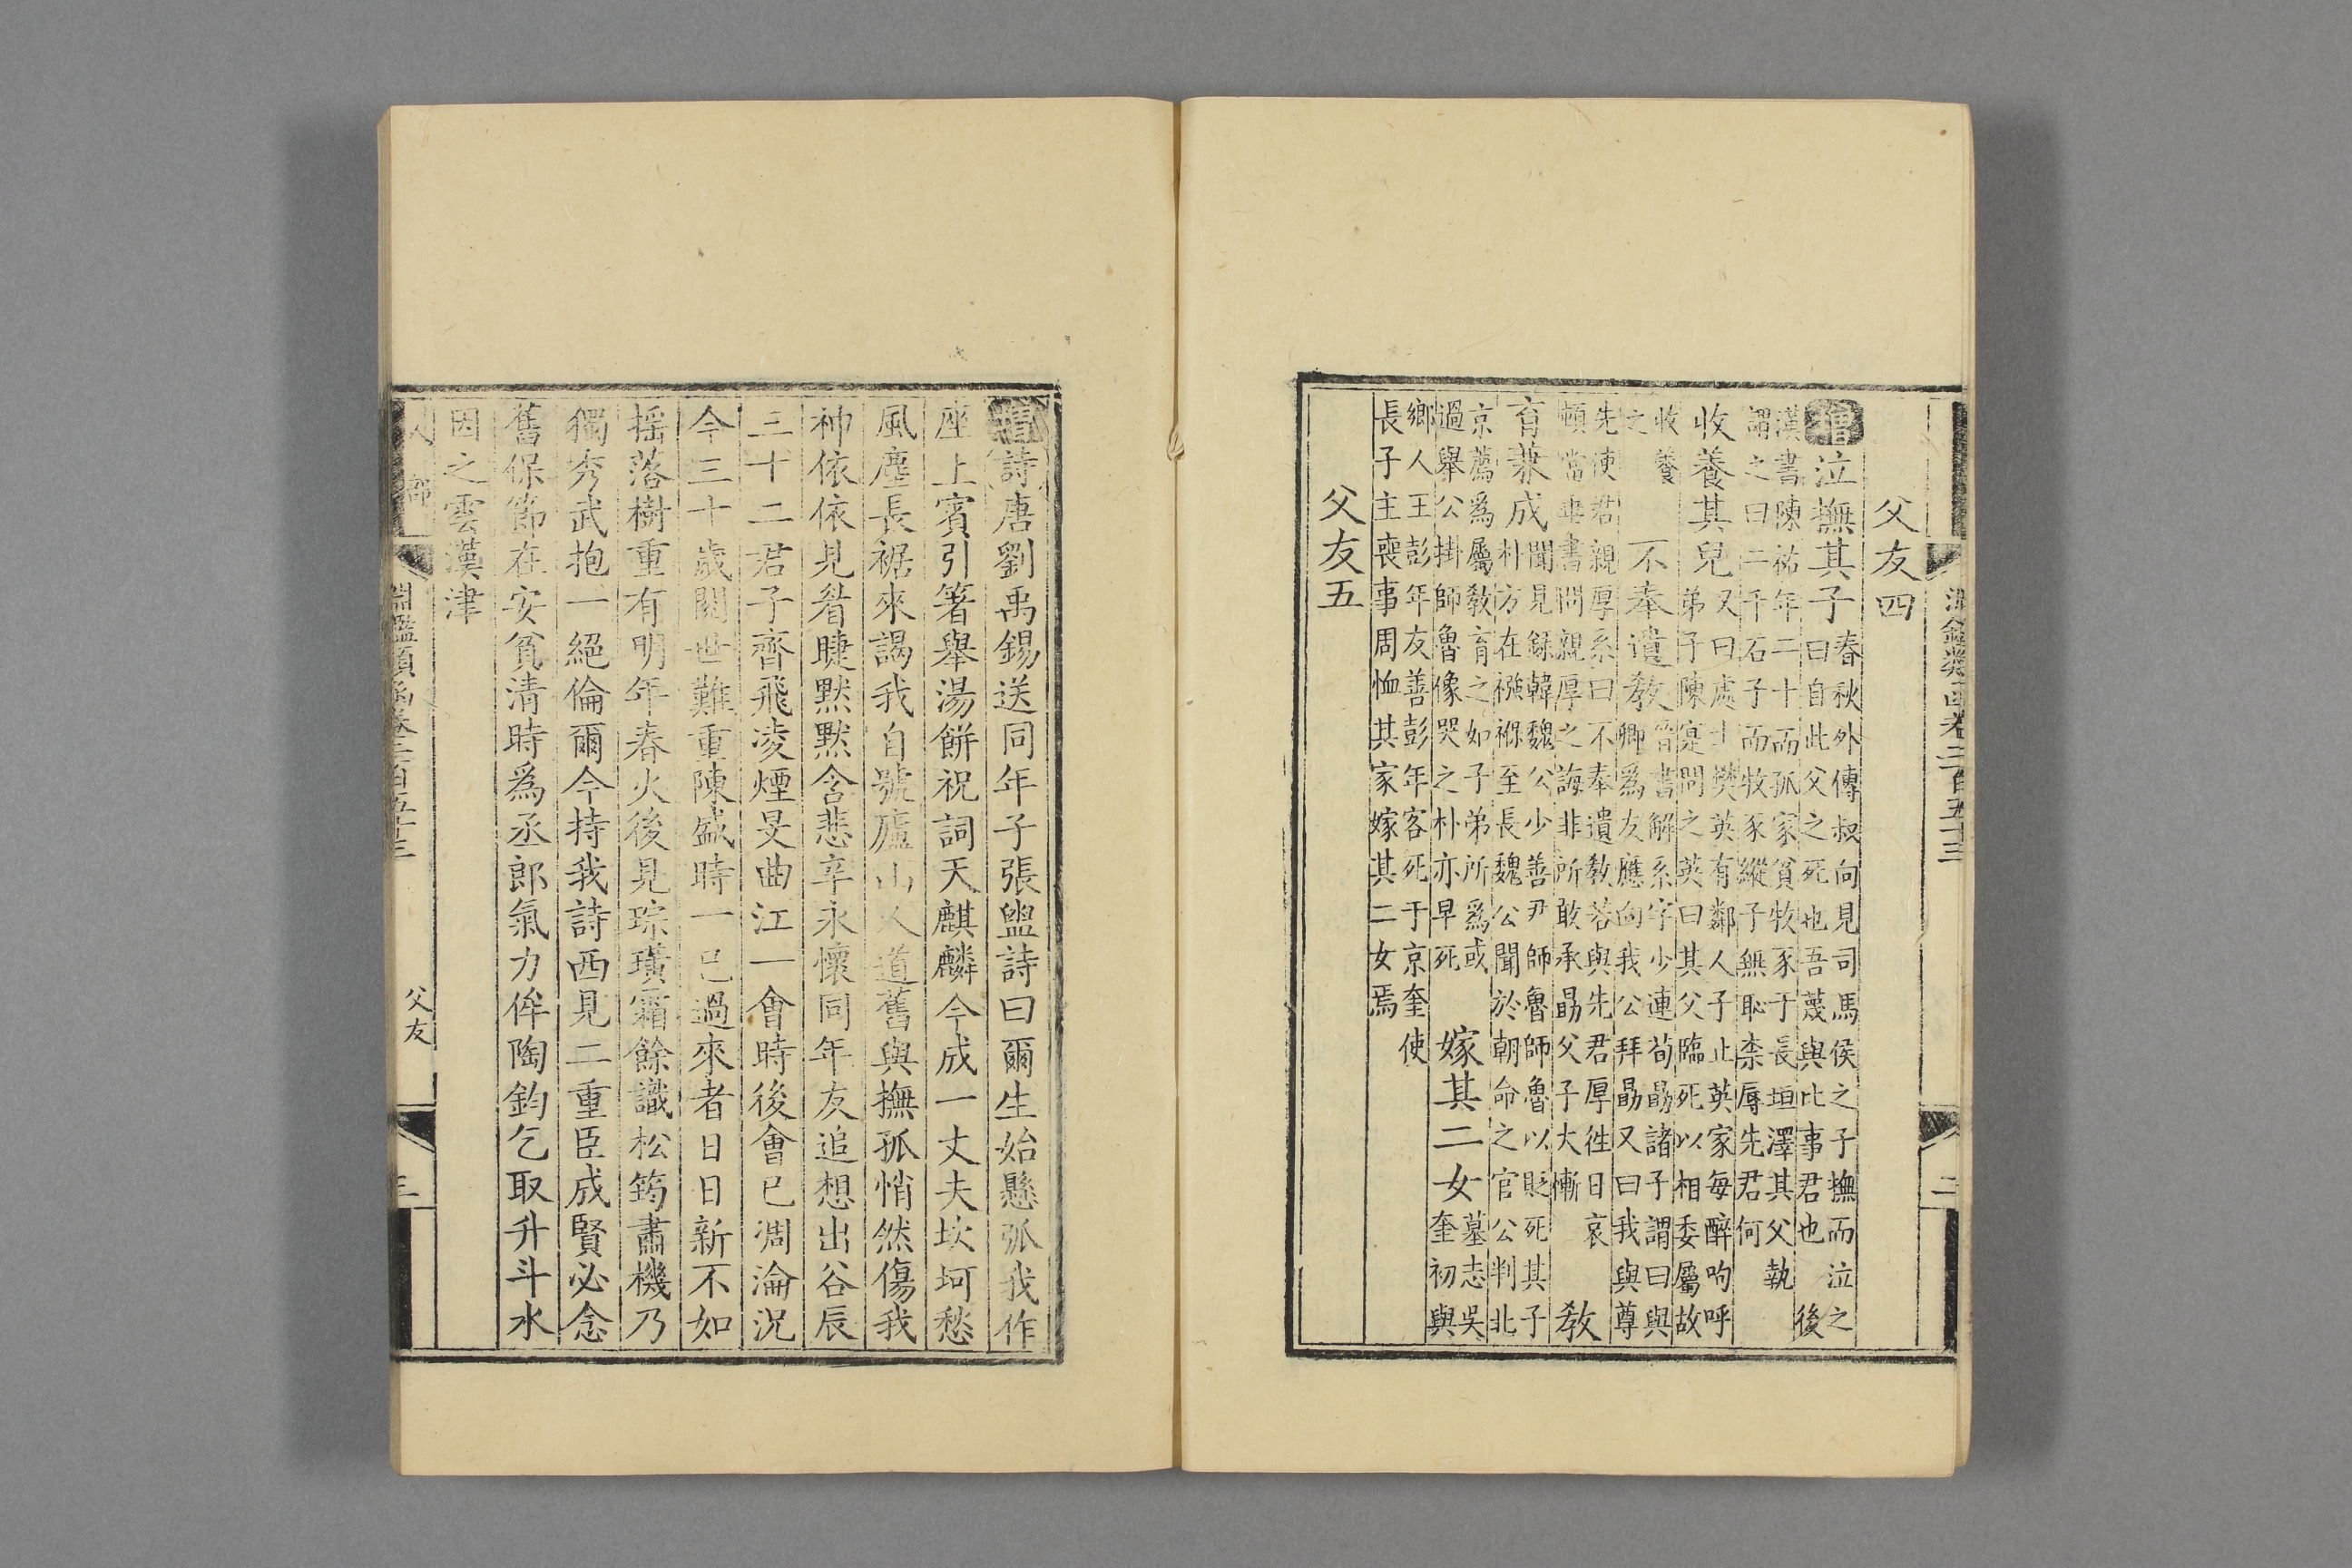 父友四
增泣撫其子春秋外傳叔向見司馬侯之子撫而泣之
曰自此父之死也吾蔑與比事君也後
漢書陳祐年二十而孤家貧牧豕于長垣澤其父執
謂之曰二千石子而牧豕縱子無恥柰辱先君何
收養其兒又曰處士樊英有鄰人子止英家每醉呴呼
弟子陳寔問之英曰其父臨死以相委屬故
收養
之
不奉遺敎晉書解系字少連荀勗諸子謂曰與
卿爲友應向我公拜勗又曰我與尊
先使君親厚系曰不奉遺敎若與先君厚徃日哀
頓當垂書問親厚之誨非所敢承勗父子大慚敎
育兼成聞見錄韓魏公少善尹師魯師魯以貶死其子
朴方在襁褓至長魏公聞於朝命之官公判北
京薦爲屬敎育之如子弟所爲或
過舉公掛師魯像哭之朴亦早死
嫁其二女墓志吳
奎初與
鄉人王彭年友善彭年客死于京奎使
長子主喪事周恤其家嫁其二女焉
父友五
淵鑑類函卷二百五十三
二
增詩唐劉禹錫送同年子張盥詩曰爾生始懸弧我作
座上賓引箸舉湯餅祝詞天麒麟今成一丈夫坎坷愁
風塵長裾來謁我自號廬山人道舊與撫孤悄然傷我
神依依見眷睫默默含悲辛永懷同年友追想出谷辰
三十二君子齊飛凌煙旻曲江一會時後會已凋淪況
今三十歲閱世難重陳盛時一已過來者日日新不如
摇落樹重有明年春火後見琮璜霜餘識松筠肅機乃
獨秀武抱一絕倫爾今持我詩西見二重臣成賢必念
舊保節在安貧清時爲丞郎氣力侔陶鈞乞取升斗水
因之雲漢津
人部
淵鑑類函卷二百五十三
父友
三